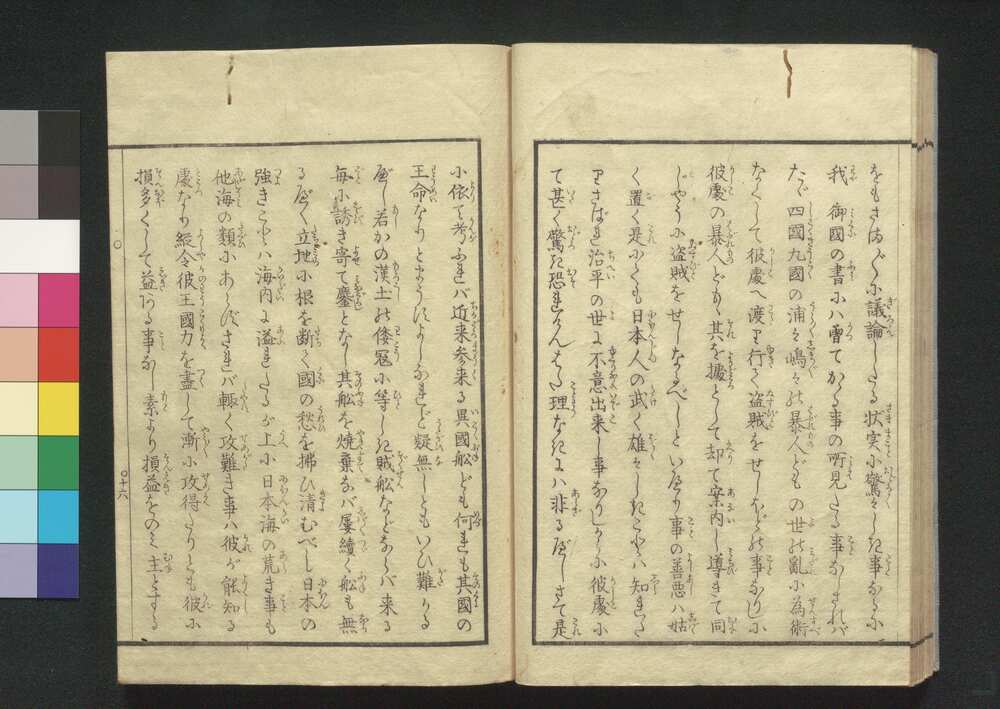 をもさまざまに議論したる状実に驚々しき事なるに
我 御國の書にハ曽てかゝる事の所見たる事なしされバ
たゞ四國九國の浦々嶋々の暴人どもの世の亂に為術
なくして彼處へ渡り行て盗賊をせしなどの事なりしに
彼處の暴人ども其を據として却て案内し導きて同
じやうに盗賊をせしなるべしといへり事の善悪ハ姑
く置く是にても日本人の武く雄々しきことハ知れた
りさばれ治平の世に不意出来し事なりしから彼處に
て甚く驚き恐れけんもまた理なきにハ非るべしさて是
に依て考ふれバ近来参来る異國舩ども何れも其國の
王命なりとまうすよしなれど疑無しともいひ難かる
べし若かの漢土の倭冦に等しき賊舩などならバ来る
毎に誘き寄て鏖となし其舩を焼棄なバ屡續く舩も無
るべく立地に根を断て國の愁を拂ひ清むべし日本の
強きことハ海内に溢れたるが上に日本海の荒き事も
他海の類にあらずされバ輙く攻難き事ハ彼が能知る
處なり縦令彼王國力を盡して漸に攻得たりとも彼に
損多くして益ある事なし素より損益をのミ主とする
十六